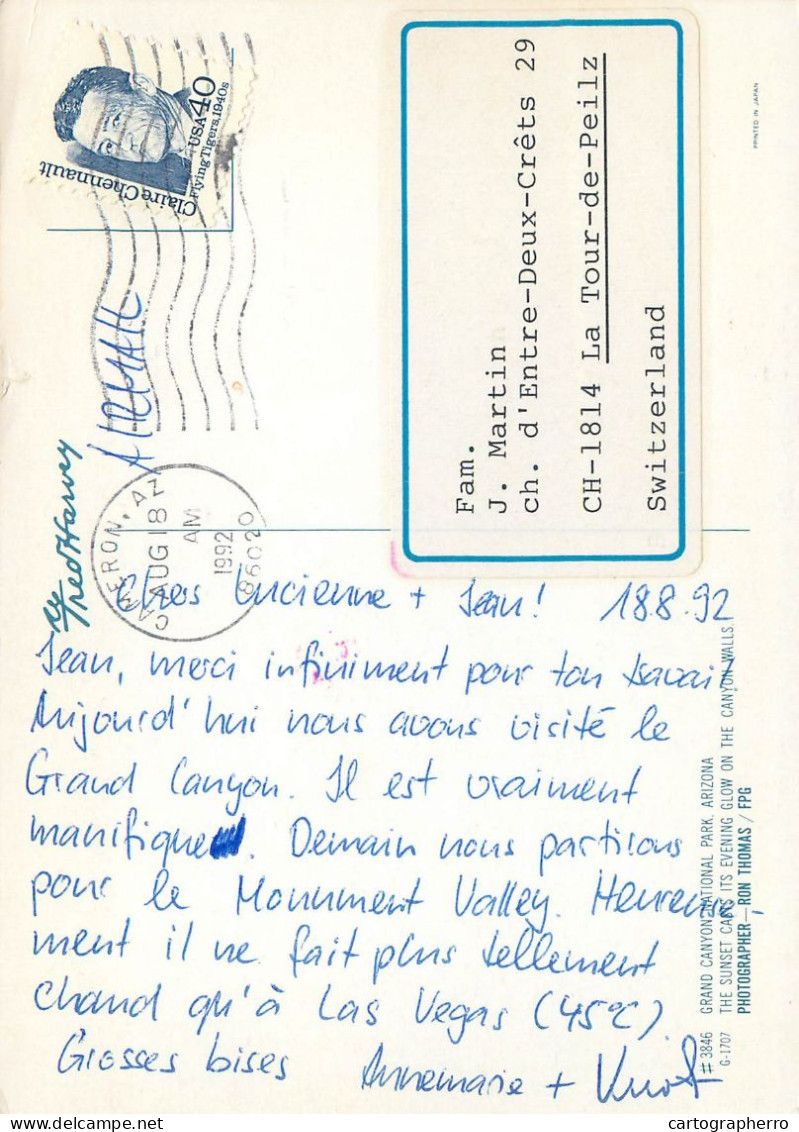 Claire Chennault
Flying Tigers, 1940s
USA 40
AIRMAIL
CAMERON, AZ
AUG 18
AM
1992
86020
Fred Harvey
Fam.
J. Martin
ch. d'Entre-Deux-Crêts 29
CH-1814 La Tour-de-Peilz
Switzerland
PRINTED IN JAPAN
Chers Lucienne + Jean! 18.8.92
Jean, merci infiniment pour ton travail
Aujourd'hui nous avons visité le
Grand Canyon. Il est vraiment
manifique. Demain nous partirons
pour le Monument Valley. Heureuse-
ment il ne fait plus tellement
chaud qu'à Las Vegas (45°C)
Grosses bises Annemarie +
#3846 GRAND CANYON NATIONAL PARK, ARIZONA
G-1707 THE SUNSET CASTS ITS EVENING GLOW ON THE CANYON WALLS.
PHOTOGRAPHER—RON THOMAS / FPG
cartographerro